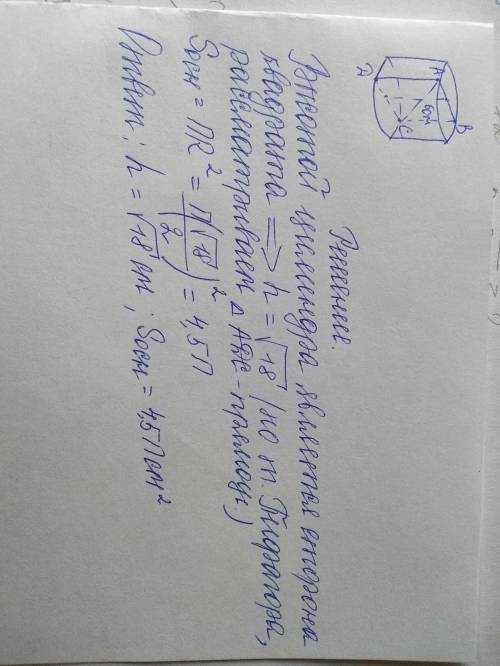 A
B
6см
C
D
Решение.
Высотой цилиндра является сторона
квадрата => h = √18 (по т. Пифагора,
рассматриваем △ABC - прямоуг)
Sосн = ПR² = П(√18/2)² = 4,5П
Ответ: h = √18 см; Sосн = 4,5П см²